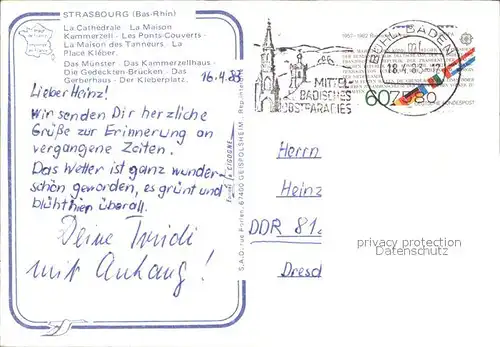 STRASBOURG (Bas-Rhin)
La Cathédrale - La Maison
Kammerzell - Les Ponts-Couverts -
La Maison des Tanneurs. La
Place Kléber.
Das Münster - Das Kammerzellhaus -
Die Gedeckten-Brücken - Das
Gerberhaus - Der Kleberplatz.
16.4.83
Lieber Heinz!
Wir senden Dir herzliche
Grüße zur Erinnerung an
vergangene Zeiten.
Das Wetter ist ganz wunder-
schön geworden, es grünt und
blüht hier überall.
Deine Trudi
mit Anhang!
67400 GEISPOLSHEIM
MITTEL
BADISCHES
OBSTPARADIES
BÜHL, BADEN
18.4.83
1957-1982
60
BUNDESPOST
Herrn
Heinz
DDR 81
Dresd
privacy protection
Datenschutz